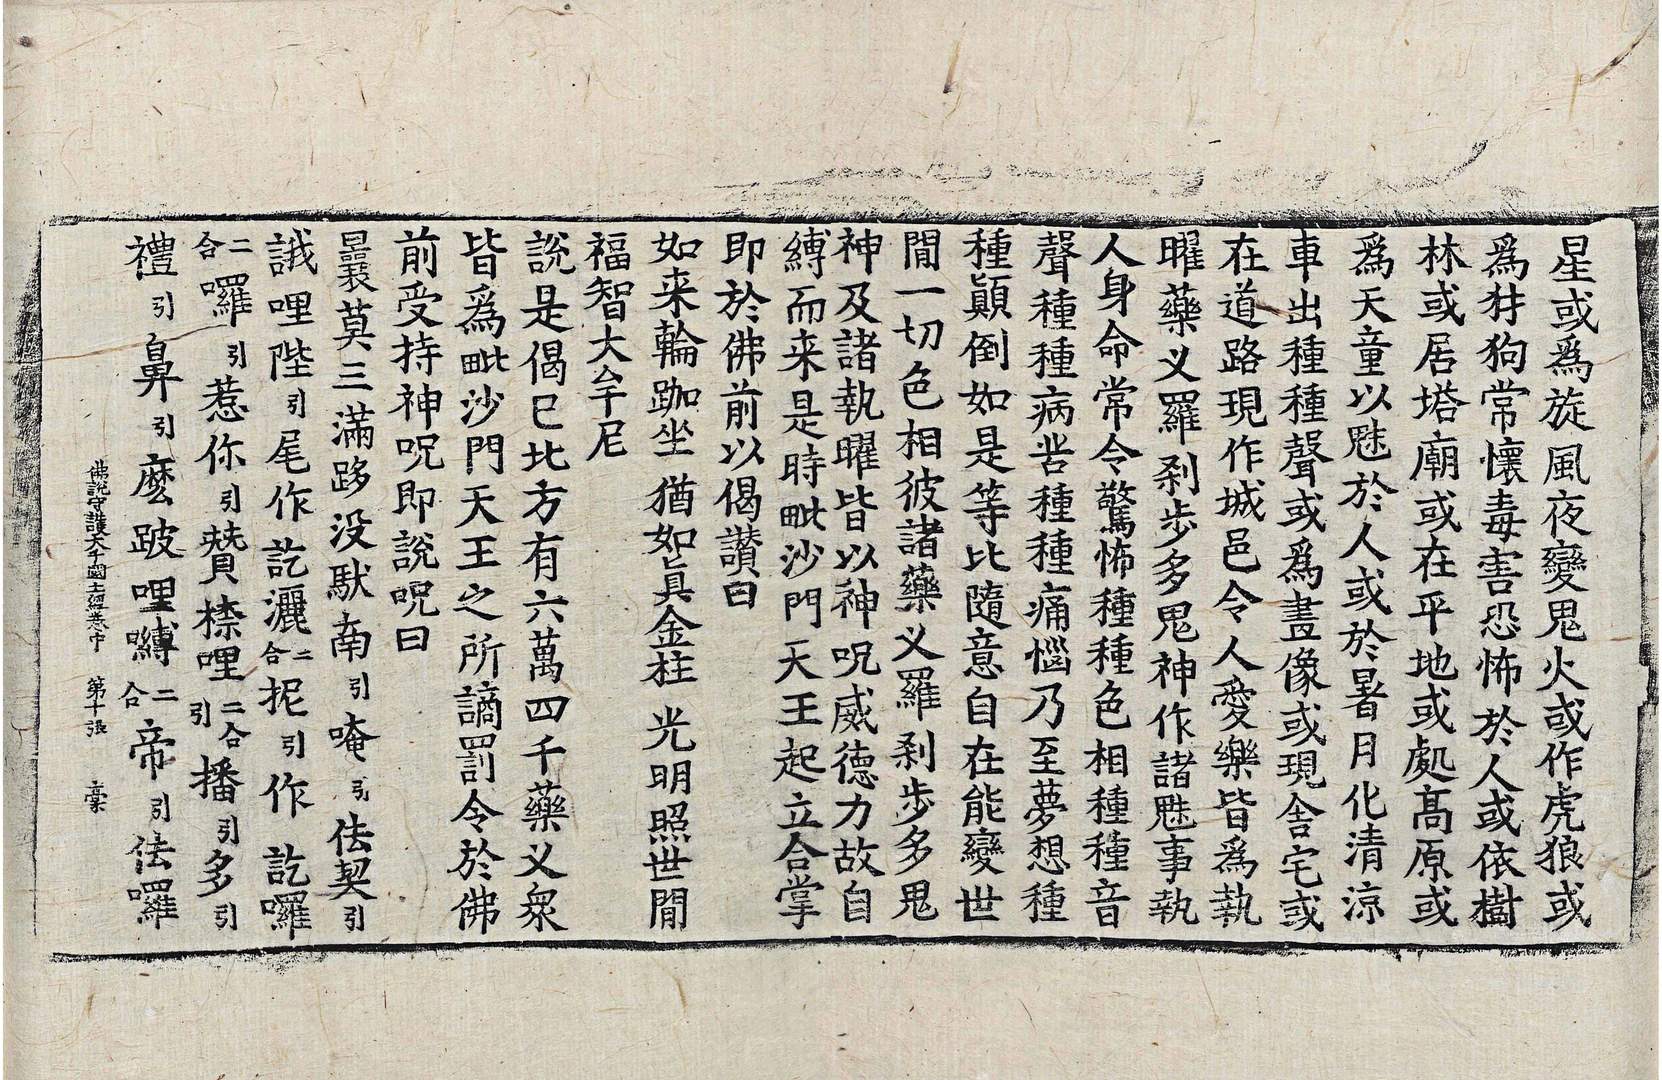 星或爲旋風夜變鬼火或作虎狼或
爲犲狗常懷毒害恐怖於人或依樹
林或居塔廟或在平地或處髙原或
爲天童以魅於人或於暑月化清涼
車出種種聲或爲畫像或現舎宅或
在道路現作城邑令人愛樂皆爲執
曜藥义羅刹步多鬼神作諸魅事執
人身命常令驚怖種種色相種種音
聲種種病苦種種痛惱乃至夢想種
種顚倒如是等比隨意自在能變世
閒一切色相彼諸藥义羅刹步多鬼
神及諸執曜皆以神呪威德力故自
縛而来是時毗沙門天王起立合掌
即於佛前以偈讃曰
如来輪跏坐 猶如真金柱 光明照世閒
福智大牟尼
說是偈已北方有六萬四千藥义衆
皆爲毗沙門天王之所謫罰令於佛
前受持神呪即說呪曰
曩莫三滿跢没馱南引唵引佉契引
誐哩陛引尾作訖灑二合抳引作 訖囉
二合囉引惹你引贊檫哩二合引播引多引
禮引鼻引麽跛哩嚩二合帝引佉囉
佛說守護大千國土經卷中 第十張 槀